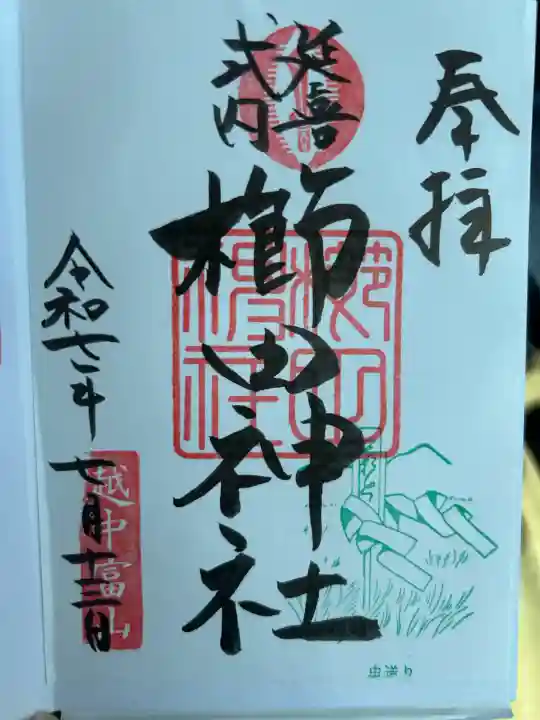 奉拝
延喜
式内
櫛田神社
令和七年七月十三日
越中富山
虫送り